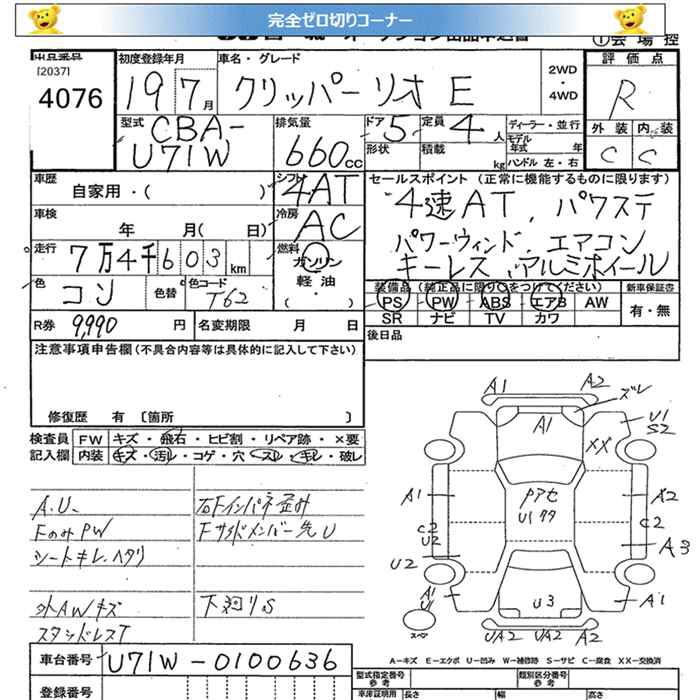 完全ゼロ切りコーナー
① 会場控
出品番号
[2037]
4076
初度登録年月
19 7月
車名・グレード
クリッパーリオ E
2WD
・
4WD
評価点
R
外装 内装
C C
型式 CBA-
U71W
排気量
660cc
ドア 5
形状
定員 4人
積載 kg
ディーラー・並行
モデル年式 年
ハンドル 左・右
車歴
自家用・( )
シフト
4AT
車検
年 月( 日)
冷房
AC
走行 7万4千603km
燃料
ガソリン
軽油
( ・ )
色
コン
色替
色コード
T62
R券 9,990 円
名変期限 月 日
セールスポイント (正常に機能するものに限ります)
4速AT、パワステ
パワーウィンド、エアコン
キーレス、アルミホイール
装備品 (純正品に限り○をつけてください)
PS PW ABS エアB AW
SR ナビ TV カワ
新車保証書
有・無
後日品
注意事項申告欄(不具合内容等は具体的に記入して下さい)
修復歴 有 〔箇所 〕
検査員記入欄
FW キズ・飛石・ヒビ割・リペア跡・×要
内装 キズ・汚レ・コゲ・穴・スレ・キレ・破レ
A.U.
FのみPW
シートキレ、ヘタリ
外AWキズ
スタッドレスT
右Fインパネ歪み
Fサイドメンバー先U
下廻りS
A1 A2 ズレ
A1 U1 S2
XX
A1 A2
Pアセ
U1 タタ
C2 U2 C2
U2 A3
A1 U3 A1
U1
スペア
UA2 UA2 A2
A―キズ E―エクボ U―凹み W―補修跡 S―サビ C―腐食 XX―交換済
車台番号 U71W-0100636
登録番号
型式指定番号 参考
類別区分番号 参考
車庫証明用 長さ 幅 高さ